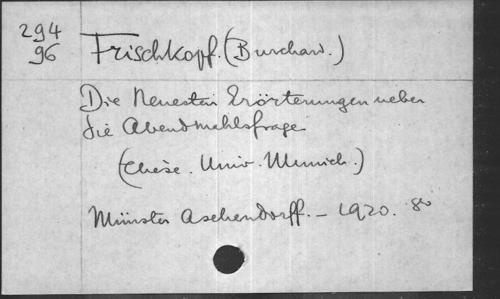 294
96
Frischkopf. (Burchard.)
Die Neuesten Erörterungen ueber
die Abendmahlsfrage
(Thèse. Univ. Munich.)
Münster Aschendorff. – 1920. 8º